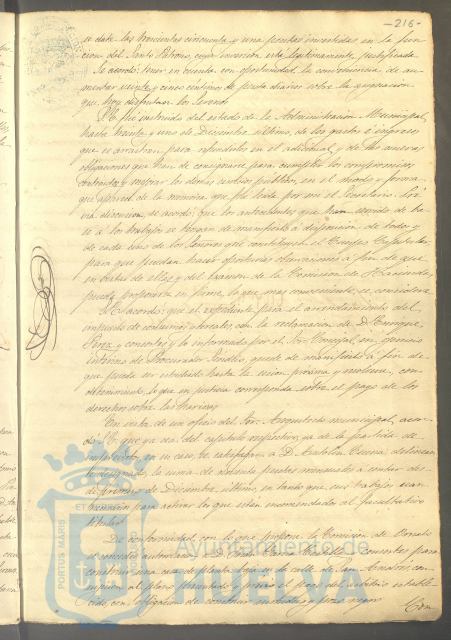 -216-
u data las trescientas cincuenta y una pesetas invertidas en la fun-
cion del Santo Patrono, cuya inversion está legitimamente justificada
Se acordó: tener en cuenta con oportunidad la conveniencia de au-
mentar veinte y cinco centimos de peseta diarios sobre la asignacion
que hoy disfrutan los Serenos
fué instruido del estado de la Administracion Municipal,
hasta treinta y uno de Diciembre último, de los gastos e ingresos
que se arrastran para refundirlos en el adicional y de las nuevas
obligaciones que han de consignarse para cumplir los compromisos
contraidos y mejorar los demas servicios públicos, en el modo y forma
que aparece de la memoria que fué leida por mi el Secretario. Pré-
via discusion, se acordó: que los antecedentes que han servido de ba-
se a los trabajos se pongan de manifiesto a disposicion de todos y
de cada uno de los Señores que constituyen el Cuerpo Capitular
para que puedan hacer oportunas observaciones a fin de que
en vista de ellas y del examen de la Comision de Hacienda,
pueda proponerse en firme lo que mas conveniente se considere
acordó: que el expediente para el arrendamiento del
impuesto de consumos y cereales, con la reclamacion de D. Enrique
Perez y consortes y lo informado por el Sor. Concejal, en
interino de Procurador Sindico, quede de manifiesto a fin de
que pueda ser estudiado hasta la sesion próxima y resolver, con
detenimiento, lo que en justicia corresponda sobre el pago de los
derechos sobre las harinas
En vista de un oficio del Sor. Arquitecto municipal, acor-
dó que ya sea del capitulo respectivo, ya de la partida de
imprevistos, en su caso, se satisfagan a D.
la suma de noventa pesetas mensuales a contar des-
de primero de Diciembre último, en tanto que sus trabajos sean
necesarios para activar los que están encomendados al facultativo
titular
De conformidad con lo que propone la Comision de Ornato
se concedió autorizacion a D. para
construir una casa de planta baja en la calle de San Andrés, con
sujecion al plano presentado y previo el pago del arbitrio estable-
cido, con obligacion de construir
Com
PORTUS MARIS
Ayuntamiento de
HUELVA